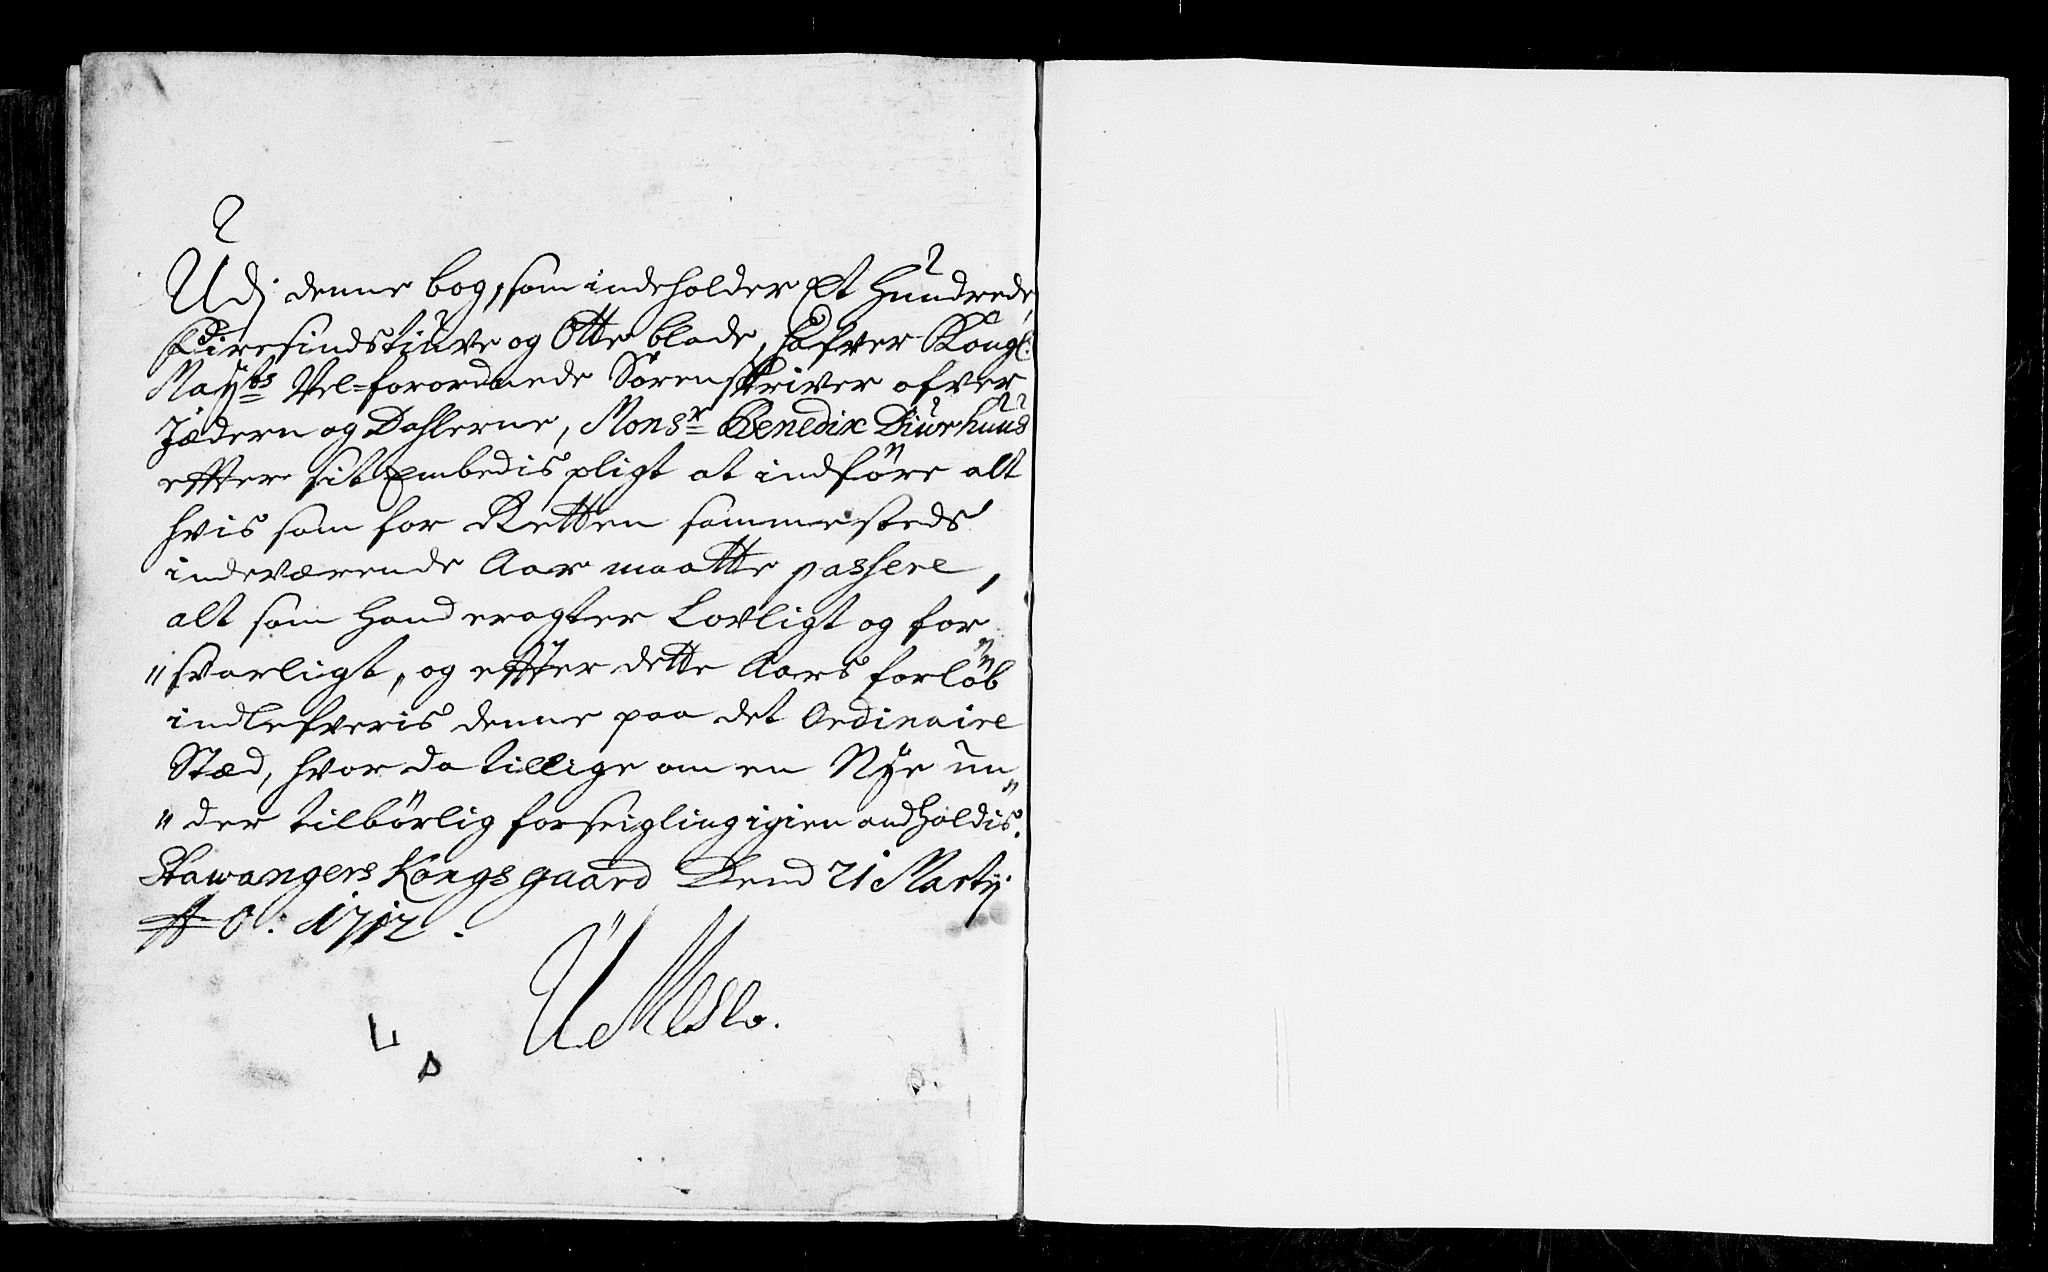 Udj denne bog, som indeholder Et Hundrede,
Firesindstiuve og Otte blade, hafver Kongl:
Mayts Vel-forordnede Sörenskriver ofver
Jædern og Dahlerne, Monsr Benedix Diurhuus
effter sit Embedis pligt at indföre alt
hvis som for Retten sammesteds
indeværende Aar maatte passere,
alt som Hand eragter Lovligt og for
"svarligt, og effter dette Aars forlöb
indlefveris denne paa det Ordinaire
Stæd, hvor da tillige om en Nye un"
"der tilbörlig forseigling igien andholdis.
Stawangers Kongsgaard Dend 21 Martij.
Ao: 1712.
L
S